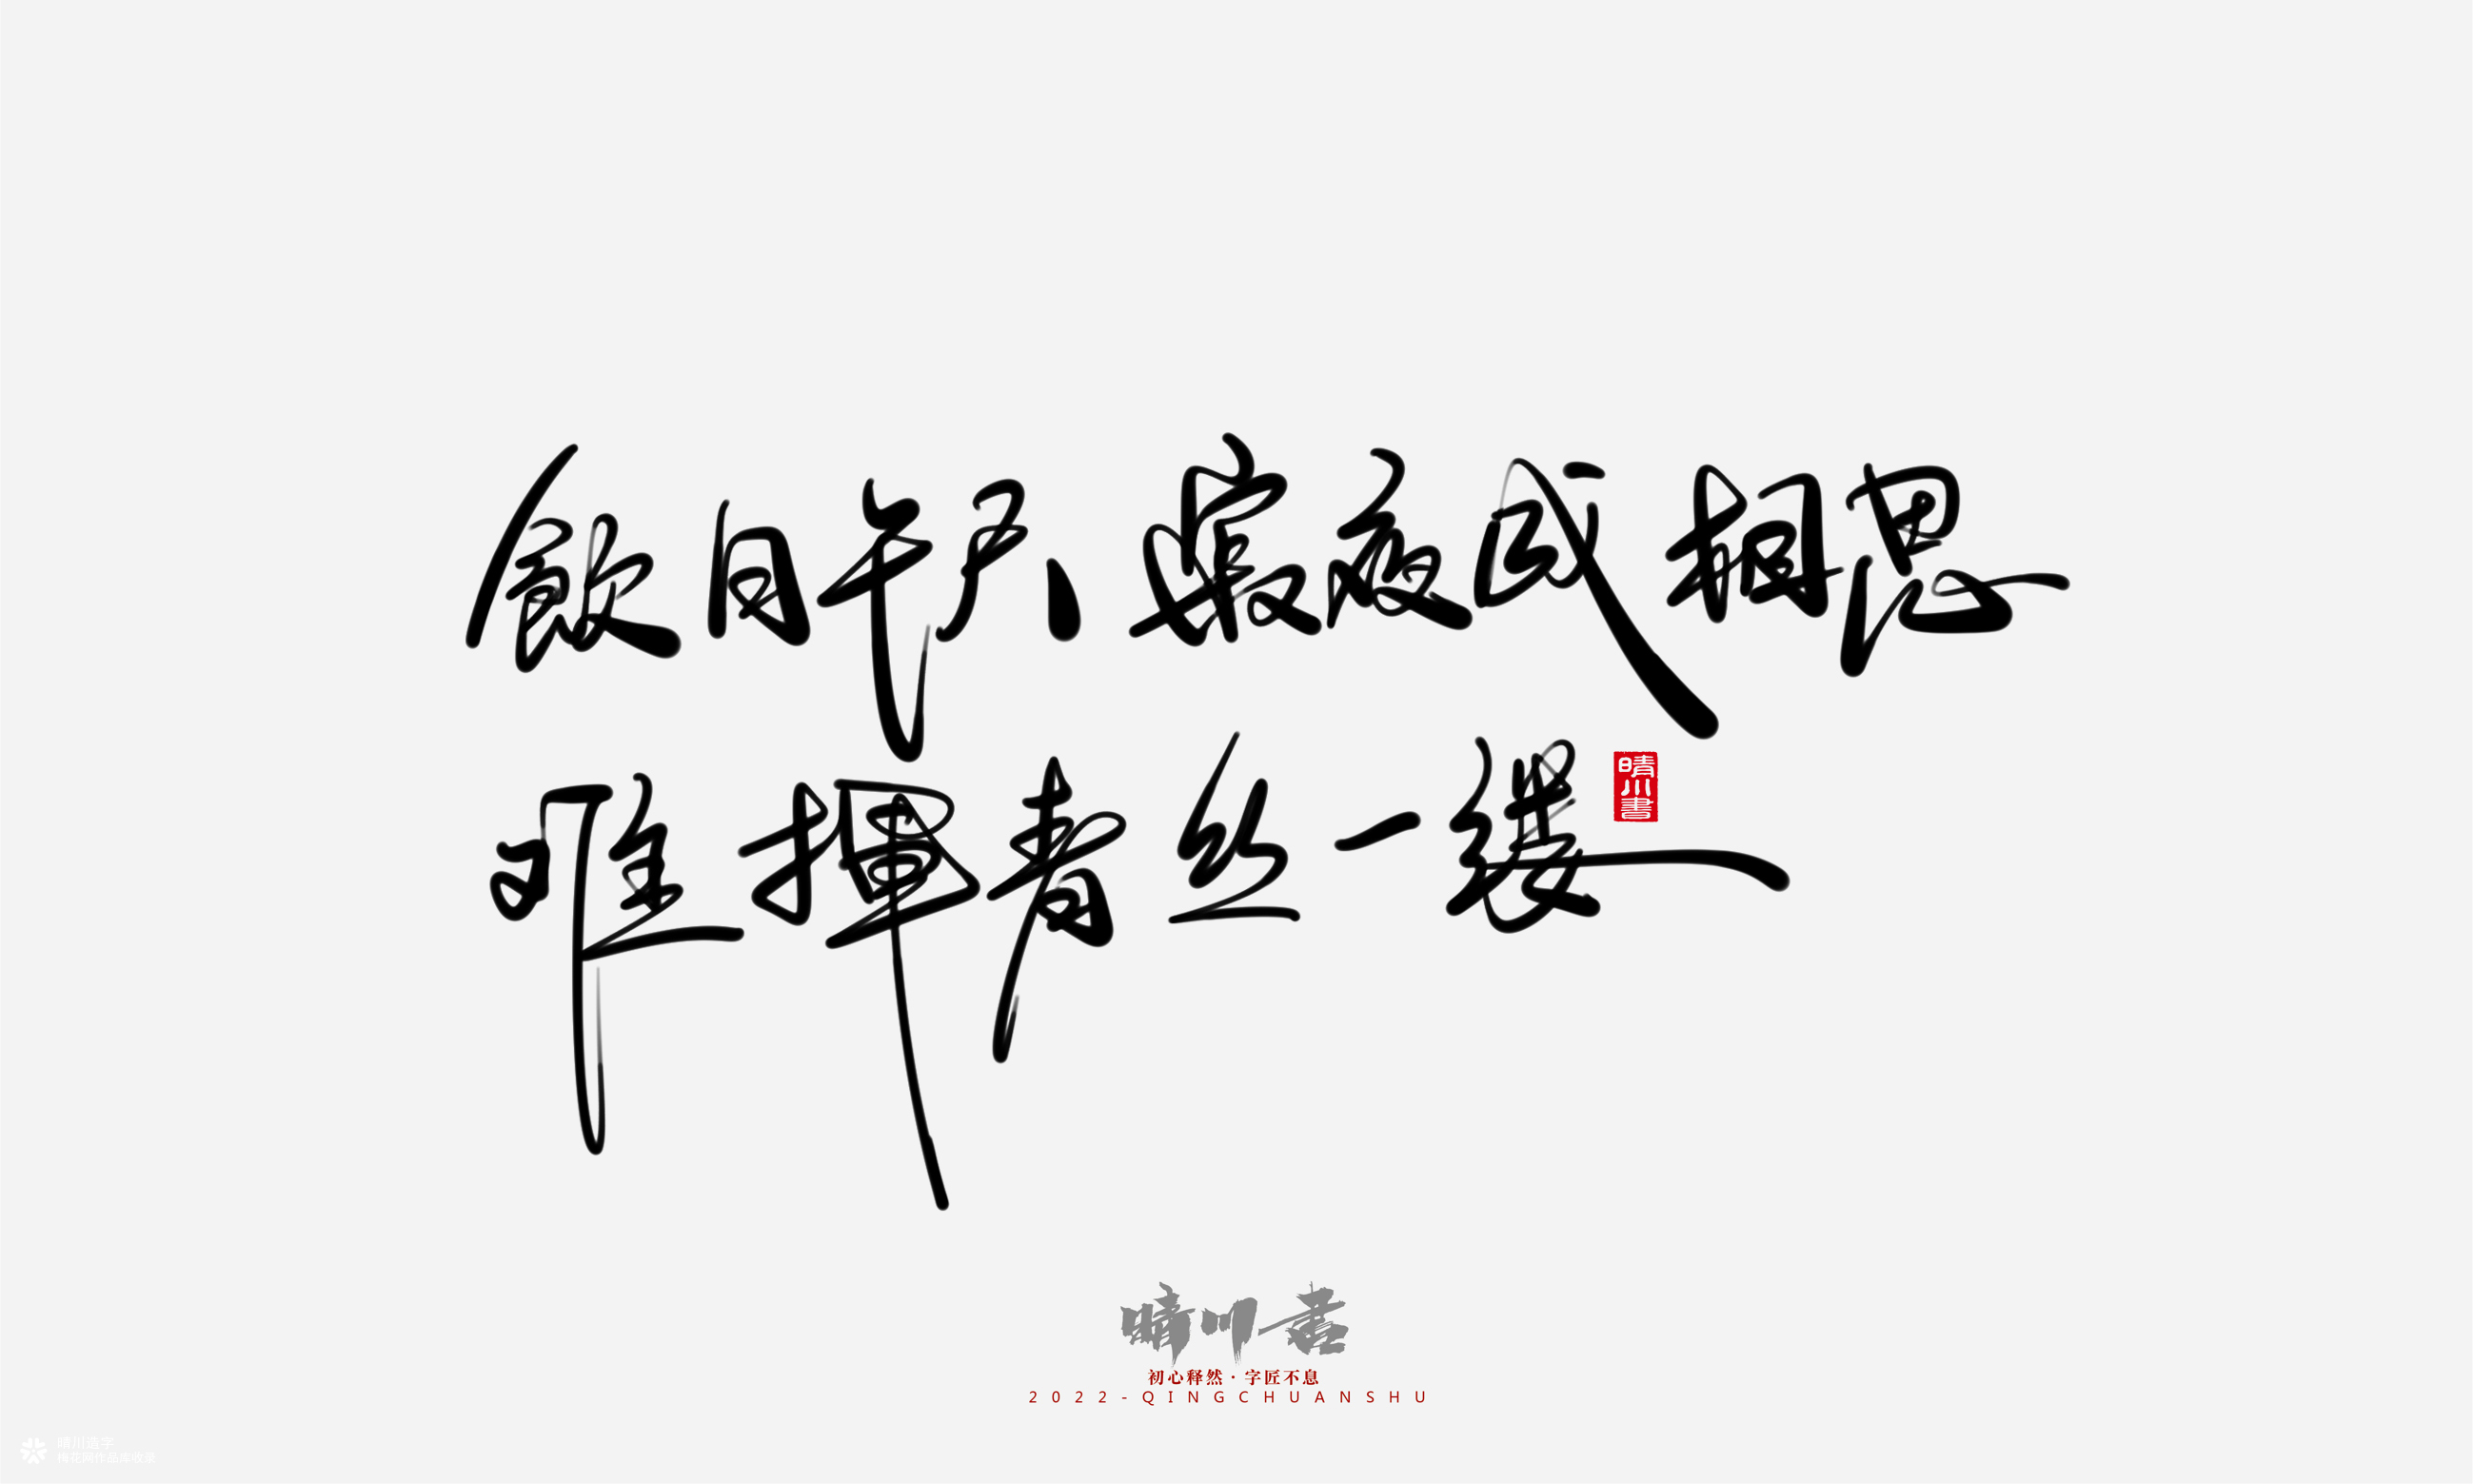 飲月 夜成相思
难挥青丝一缕
晴川書
晴川書
初心释然·字匠不息
2022-QINGCHUANSHU
晴川造字